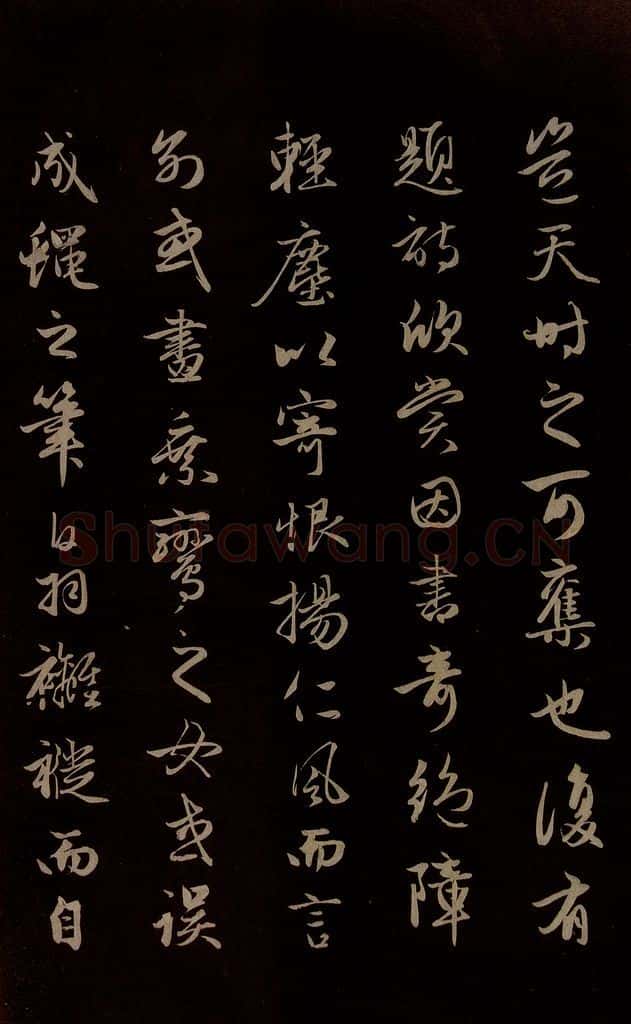 豈天時之可奪也復有
題詩欣賞因書奇絕障
輕塵以寄恨揚仁風而言
別或畫乘鸞之女或誤
成蠅之筆
而自
Shufawang.CN